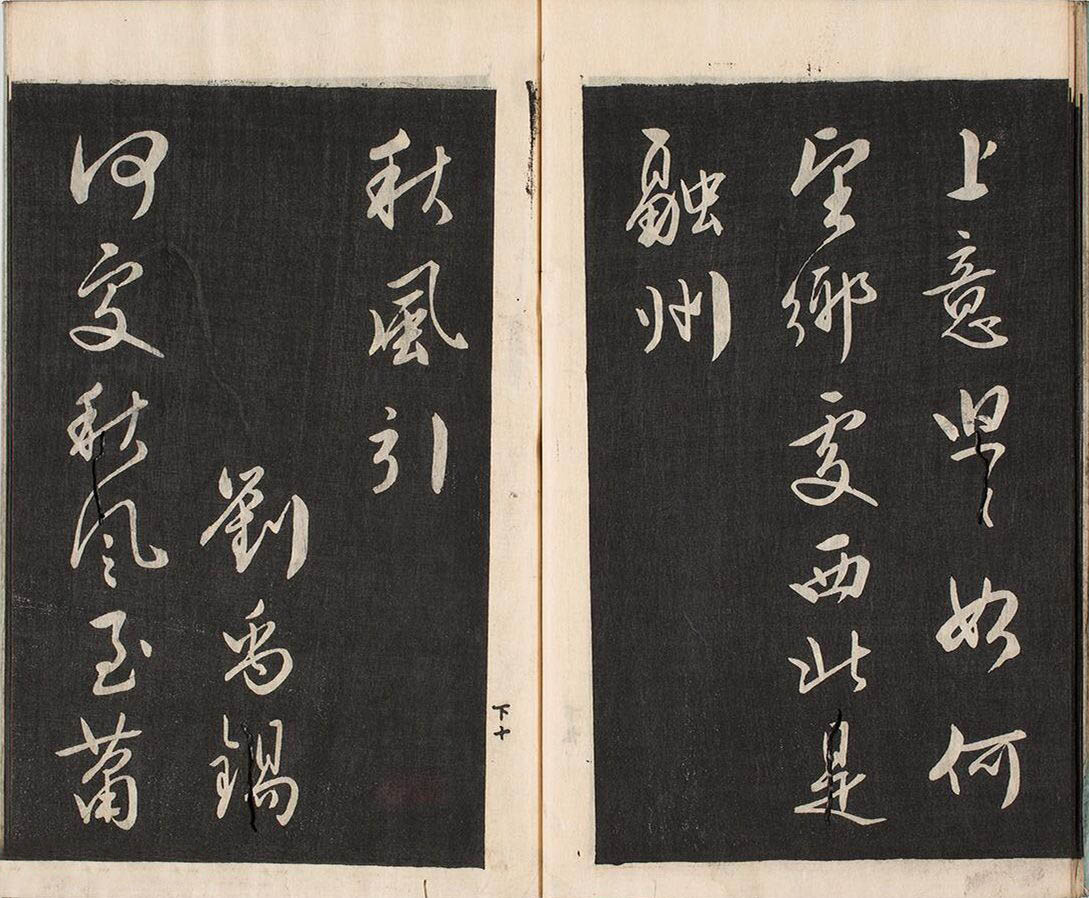 上意悠々如何
望鄉處西北是
融州
下十
秋風引
劉禹錫
何處秋風至蕭